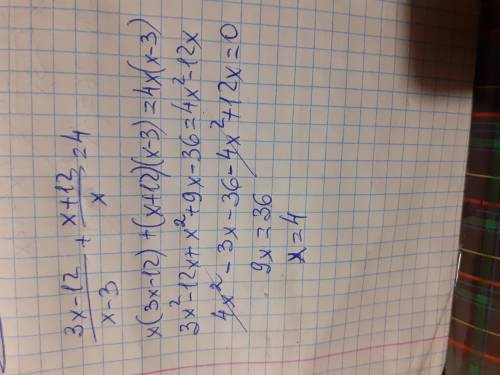 (3x-12)/(x-3) + (x+12)/x = 4
x(3x-12)+(x+12)(x-3)=4x(x-3)
3x²-12x+x²+9x-36=4x²-12x
4x²-3x-36-4x²+12x=0
9x=36
x=4